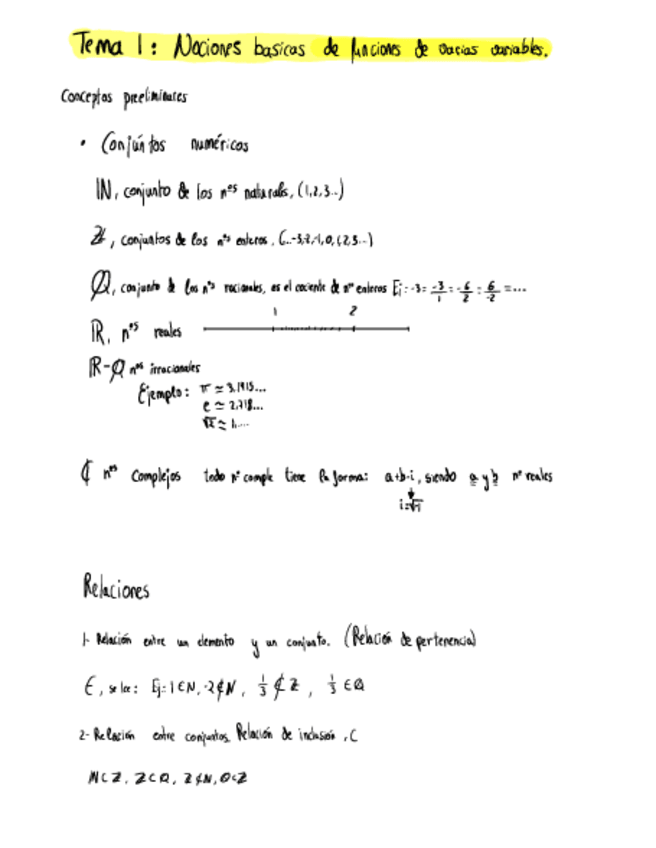 Tema 1: Nociones basicas de funciones de varias variables.
Conceptos preeliminares
• Conjuntos numéricos
ℕ, conjunto de los nºs naturales, (1,2,3...)
ℤ, conjuntos de los nºs enteros. (...-3,-2,-1,0,1,2,3...)
ℚ, conjunto de los nºs racionales, es el cociente de nºs enteros Ej: -3 = -3/1 = -6/2 = 6/-2 = ...
1 2
ℝ, nºs reales
ℝ-ℚ nºs irracionales
Ejemplo: π ≃ 3,1415...
e ≃ 2,718...
√2 ≃ 1,...
ℂ nºs Complejos todo nº comple tiene la forma: a+b·i, siendo a y b nº reales
i=√-1
Relaciones
1- Relación entre un elemento y un conjunto. (Relación de pertenencia)
∈, se lee: Ej: 1∈N, -2∉N, 1/3 ∉ Z, 1/3 ∈ Q
2- Relación entre conjuntos. Relación de inclusión, ⊂
N⊂Z, Z⊂Q, Z⊄N,